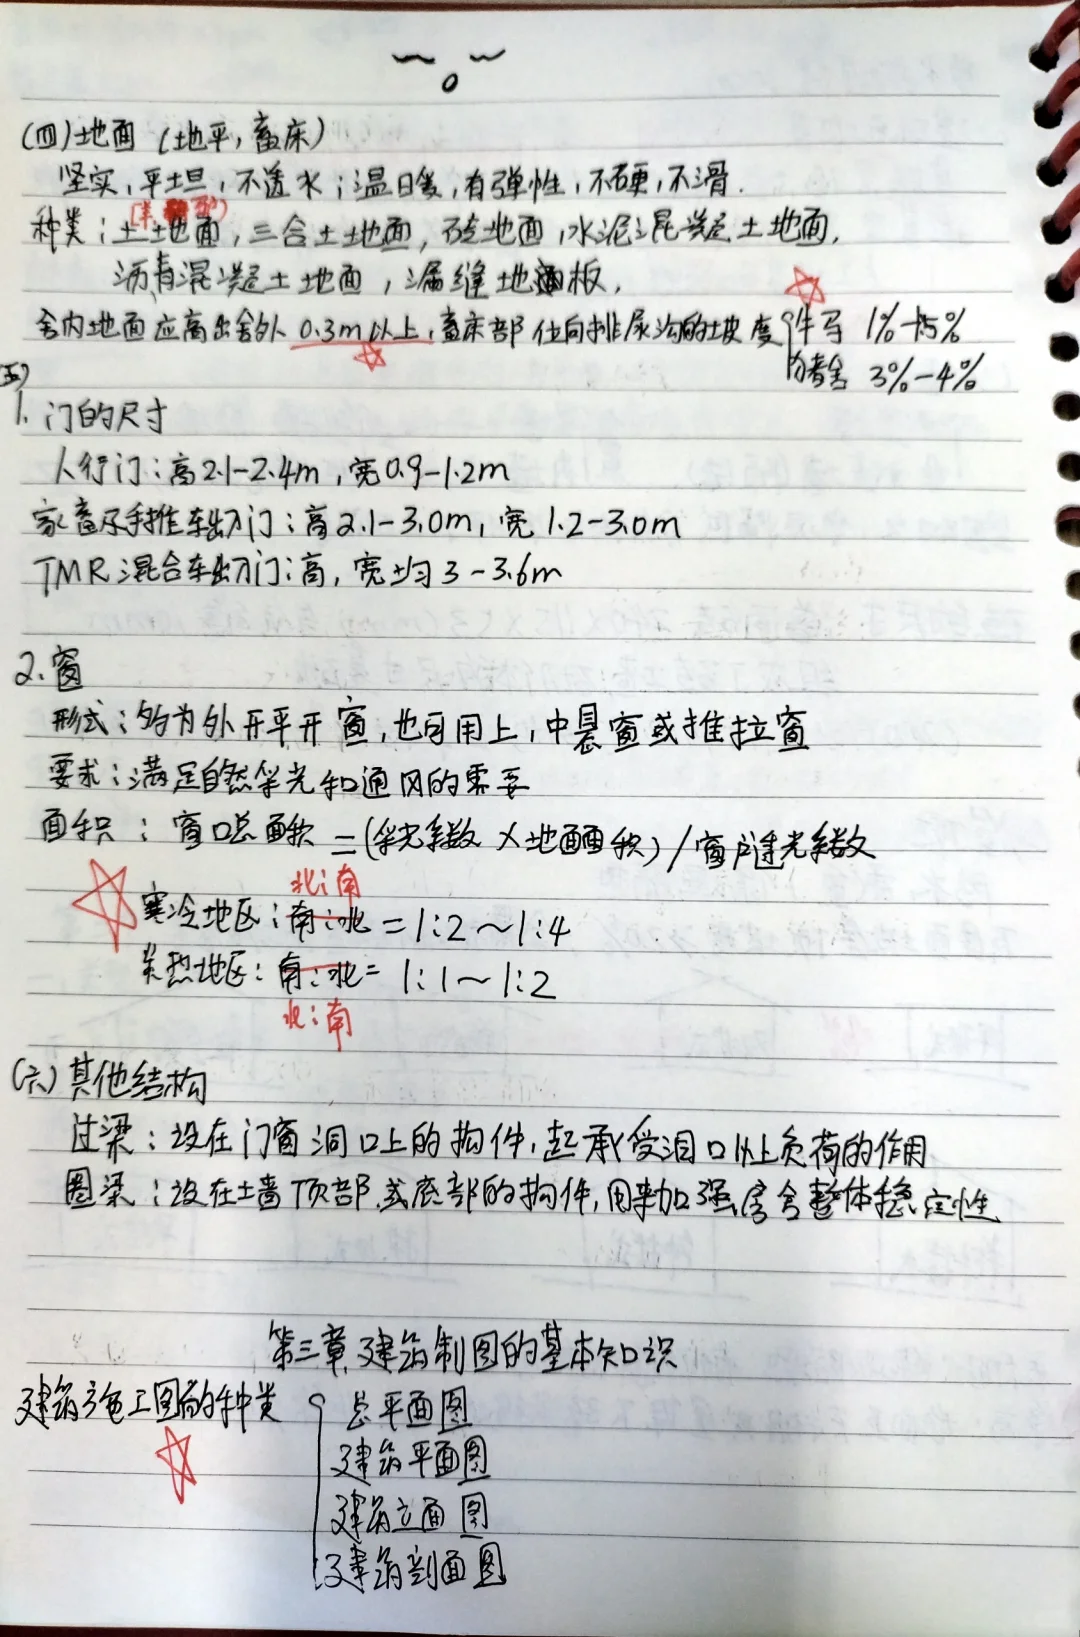 (四)地面 (地平,畜床)
坚实,平坦,不透水;温暖,有弹性,不硬,不滑.
种类:土土地面,三合土地面,砖地面,水泥混凝土地面,
沥青混凝土地面,漏缝地板,
舍内地面应高出舍外0.3m以上,畜床部位向排尿沟的坡度 牛马 1%-1.5%
猪舍 3%-4%
(五)
1. 门的尺寸
人行门:高2.1-2.4m,宽0.9-1.2m
家畜及手推车出入门:高2.1-3.0m,宽1.2-3.0m
TMR混合车出入门:高,宽均3-3.6m
2.窗
形式:多为外开平开窗,也可用上,中悬窗或推拉窗
要求:满足自然采光和通风的需要
面积:窗口总面积=(采光系数×地面面积)/窗户透光系数
北:南
寒冷地区:南:北=1:2~1:4
炎热地区:南:北=1:1~1:2
北:南
(六)其他结构
过梁:设在门窗洞口上的构件,起承受洞口以上负荷的作用
圈梁:设在墙顶部或底部的构件,用来加强房舍整体稳定性
第三章 建筑制图的基本知识
建筑施工图的种类 总平面图
建筑平面图
建筑立面图
建筑剖面图